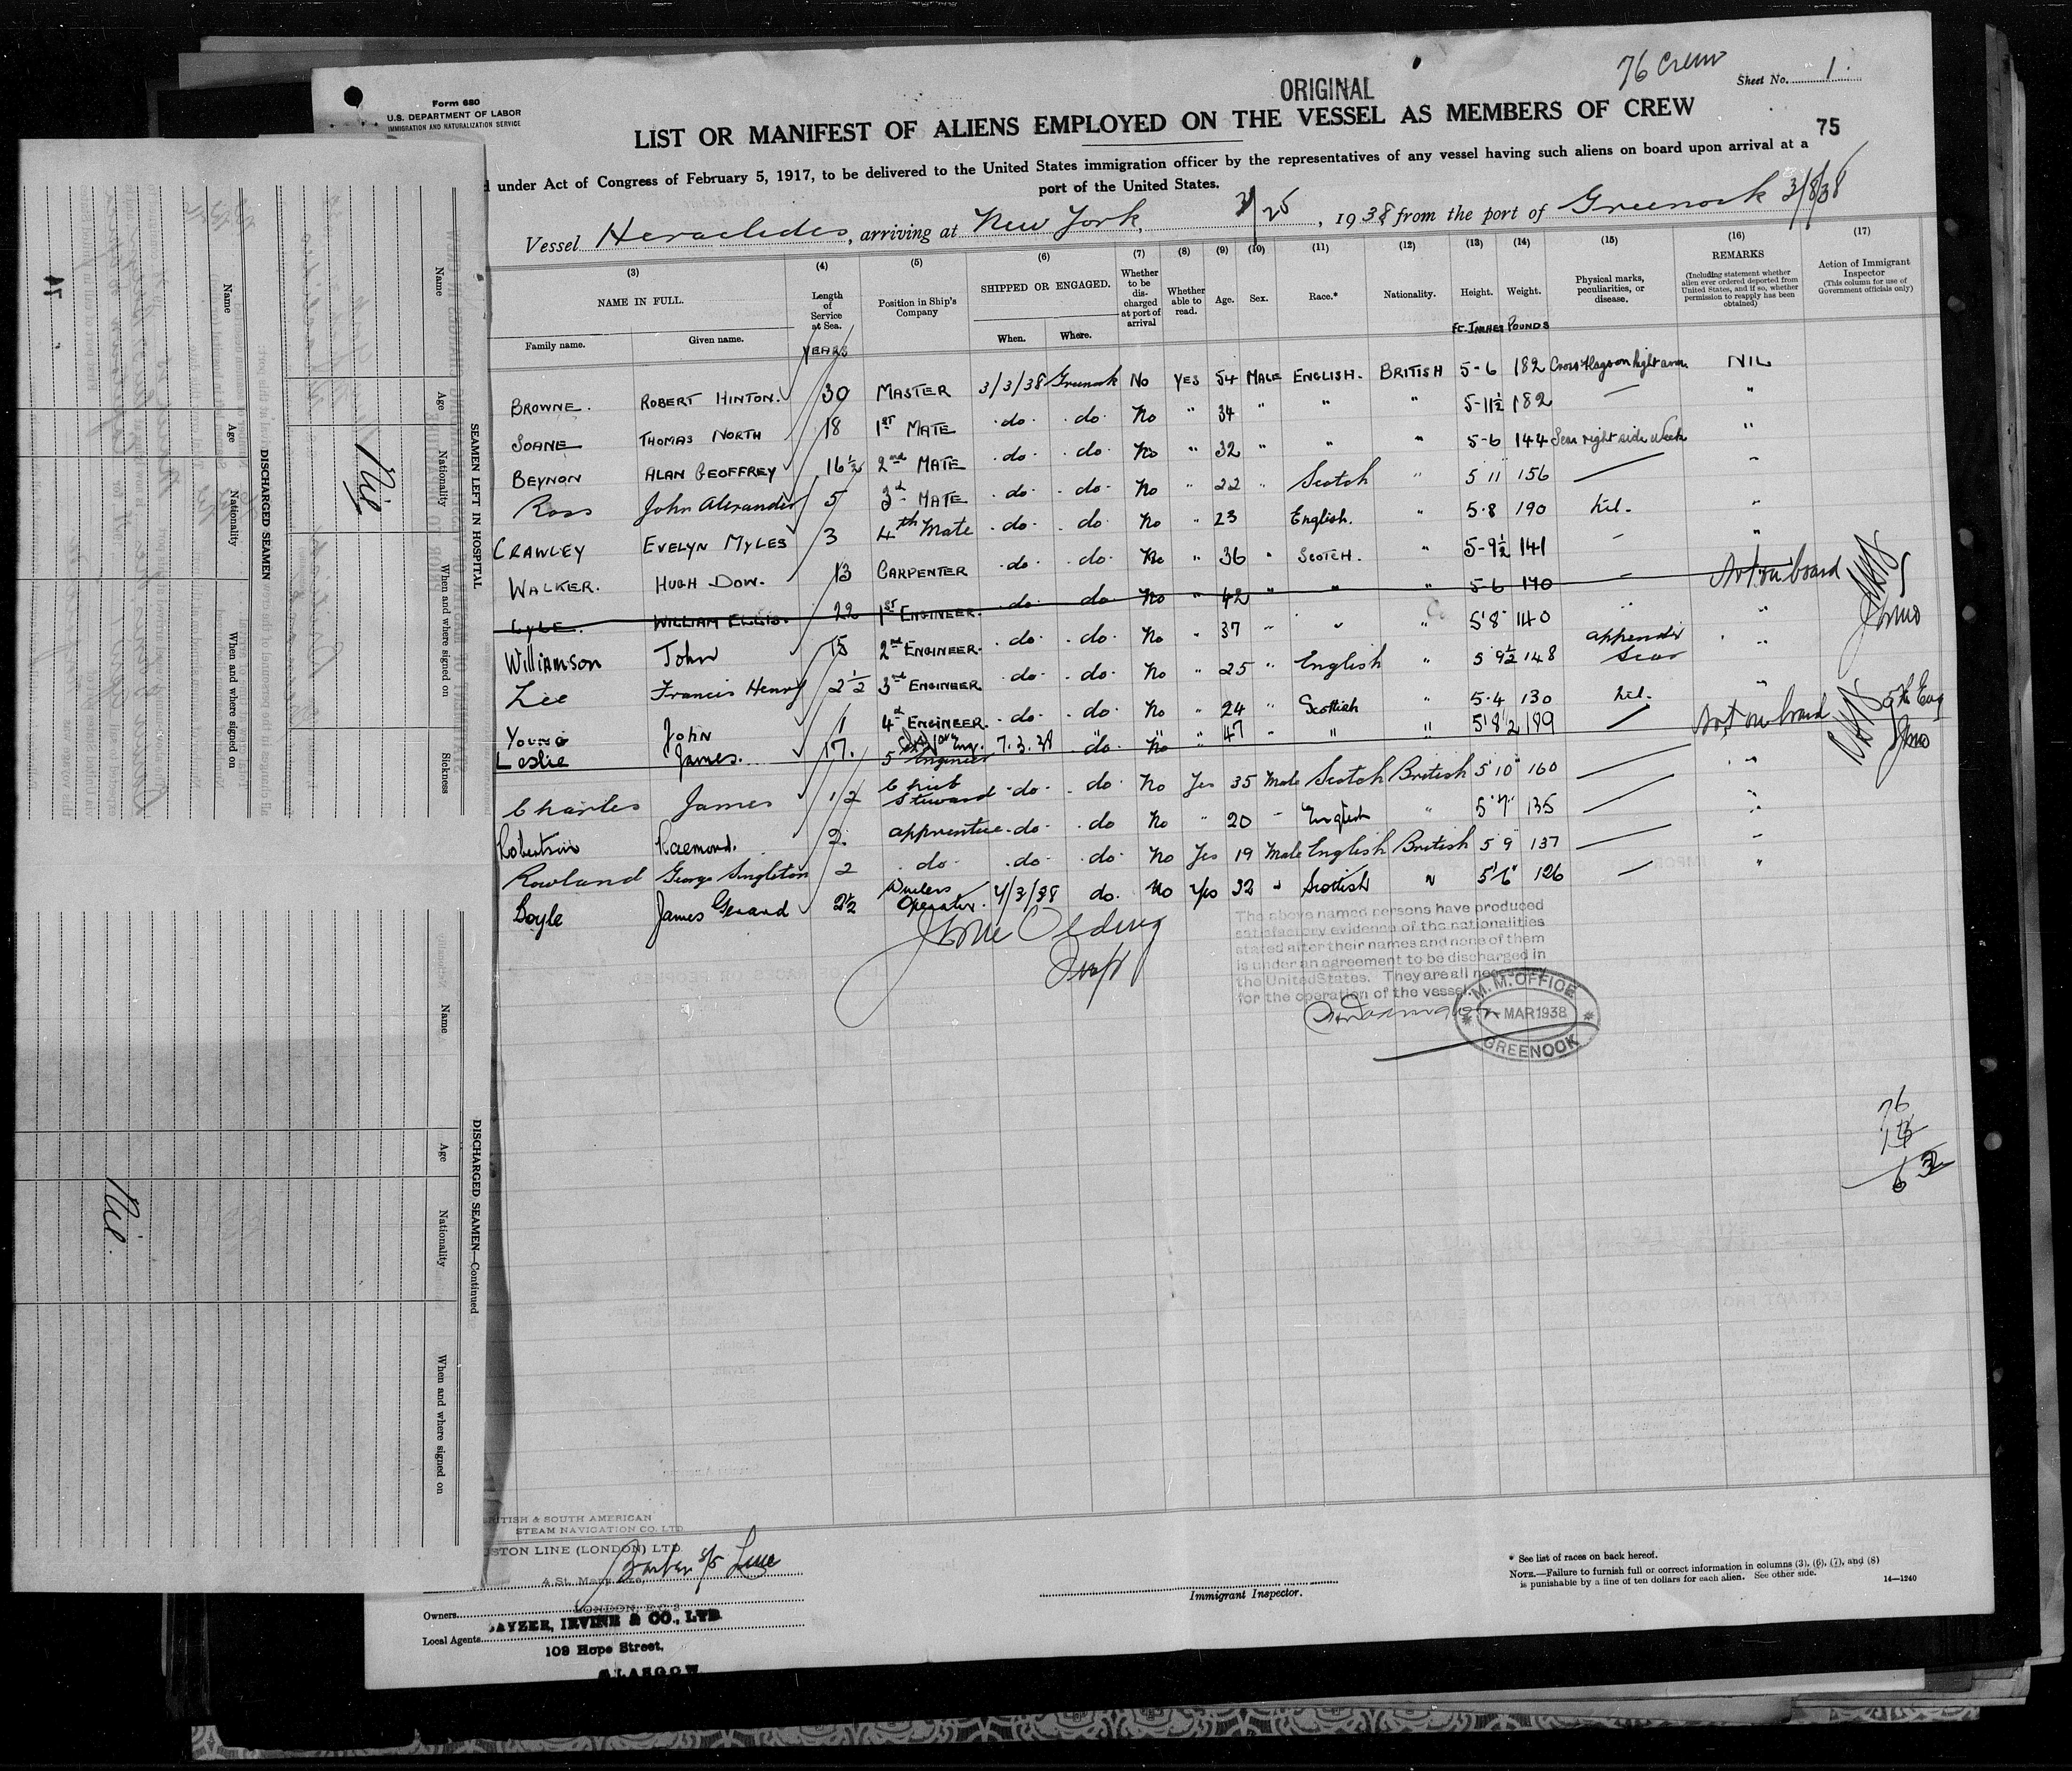 76 Crew
ORIGINAL
Sheet No. 1.
Form 680
U.S. DEPARTMENT OF LABOR
IMMIGRATION AND NATURALIZATION SERVICE
LIST OR MANIFEST OF ALIENS EMPLOYED ON THE VESSEL AS MEMBERS OF CREW
75
under Act of Congress of February 5, 1917, to be delivered to the United States immigration officer by the representatives of any vessel having such aliens on board upon arrival at a
port of the United States.
Vessel Heraclides, arriving at New York, 3/25, 1938 from the port of Greenock 3/8/38
(3) (4) (5) (6) (7) (8) (9) (10) (11) (12) (13) (14) (15) (16) (17)
NAME IN FULL. Length of Service at Sea. Position in Ship's Company SHIPPED OR ENGAGED. Whether to be discharged at port of arrival Whether able to read. Age. Sex. Race.* Nationality. Height. Weight. Physical marks, peculiarities, or disease. REMARKS (Including statement whether alien ever ordered deported from United States, and if so, whether permission to reapply has been obtained) Action of Immigrant Inspector (This column for use of Government officials only)
Family name. Given name. YEARS When. Where. Ft. Inches POUNDS
BROWNE. ROBERT HINTON. 30 MASTER 3/3/38 Greenock No YES 54 MALE ENGLISH. BRITISH 5-6 182 Cross Flags on right arm NIL
SOANE THOMAS NORTH 18 1ST MATE do. do. No " 34 " " " 5-11½ 182 — "
BEYNON ALAN GEOFFREY 16½ 2nd MATE do. do. No " 32 " " " 5-6 144 Scar right side "
Ross John Alexander 5 3d MATE do. do. No " 22 " Scotch " 5 11 156 — "
CRAWLEY EVELYN MYLES 3 4th Mate do. do. No " 23 English. " 5.8 190 Nil. "
WALKER. HUGH DOW. 13 CARPENTER do. do. No " 36 " SCOTCH. " 5-9½ 141 — "
LYLE. WILLIAM ELLIS. 22 1ST ENGINEER. do. do. No " 42 " " " 5-6 140 — Not on board
Williamson John 15 2nd ENGINEER. do. do. No " 37 " " " 5'8" 140 " "
Lee Francis Henry 2½ 3rd ENGINEER do. do. No " 25 " English " 5 9½ 148 appendix Scar "
Young John 1 4th ENGINEER. do. do. No " 24 " Scottish " 5.4 130 Nil. "
Leslie James. 17. 5 Engineer 7.3.38 do. No " 47 " " " 5'8½ 189 — Not on board 5th Eng
Charles James 12 Chief Steward do. do No Yes 35 Male Scotch British 5'10" 160 — "
Robertson Raemond. 2. apprentice do. do No " 20 " English " 5'7" 135 — "
Rowland George Singleton 2 do. do. do. No Yes 19 Male English British 5 9 137 — "
Boyle James Gerard 2½ Wireless Operator. 4/3/38 do. No Yes 32 " Scottish " 5'6" 126 — "
The above named persons have produced
satisfactory evidence of the nationalities
stated after their names and none of them
is under an agreement to be discharged in
the United States. They are all necessary
for the operation of the vessel.
M.M. OFFICE
MAR 1938
GREENOCK
76
63
SEAMEN LEFT IN HOSPITAL
Name Age Nationality When and where signed on Sickness
Nil
DISCHARGED SEAMEN
Name Age Nationality When and where signed on
DISCHARGED SEAMEN—Continued
Name Age Nationality When and where signed on
Nil.
BRITISH & SOUTH AMERICAN
STEAM NAVIGATION CO. LTD
HOUSTON LINE (LONDON) LTD.
Barber S/S Line
LONDON, E.C.3
Owners
Local Agents CAYZER, IRVINE & CO., LTD.
109 Hope Street,
GLASGOW
Immigrant Inspector.
* See list of races on back hereof.
NOTE.—Failure to furnish full or correct information in columns (3), (6), (7), and (8)
is punishable by a fine of ten dollars for each alien. See other side.
14—1240